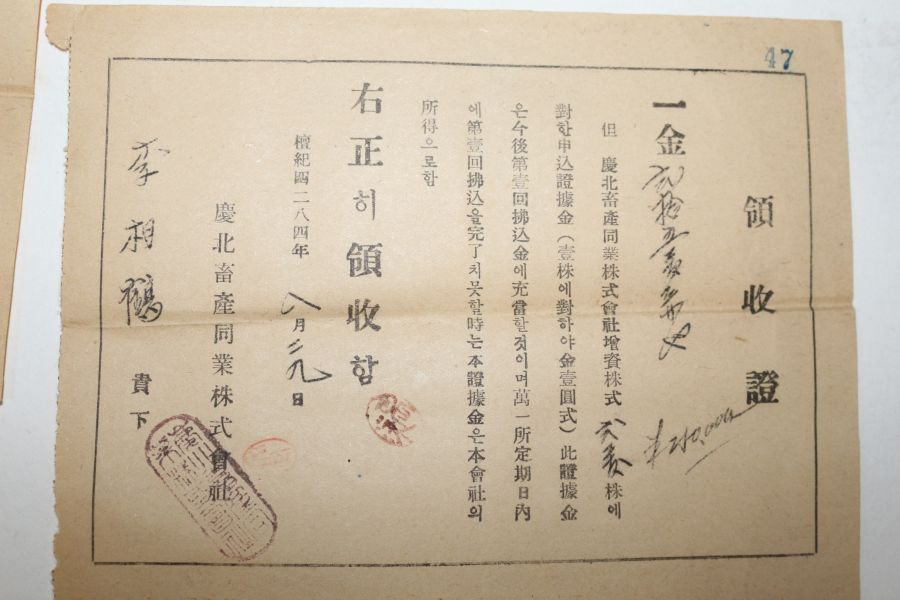 47
領收證
一金
但 慶北畜產同業株式會社增資株式 株에
對한申込證據金（壹株에對하야金壹圓式）此證據金
은今後第壹回拂込金에充當할것이며萬一所定期日內
에第壹回拂込을完了치못할時는本證據金은本會社의
所得으로함
右正히領收함
檀紀四二八四年 八月二九日
慶北畜產同業株式會社
李相鶴 貴下